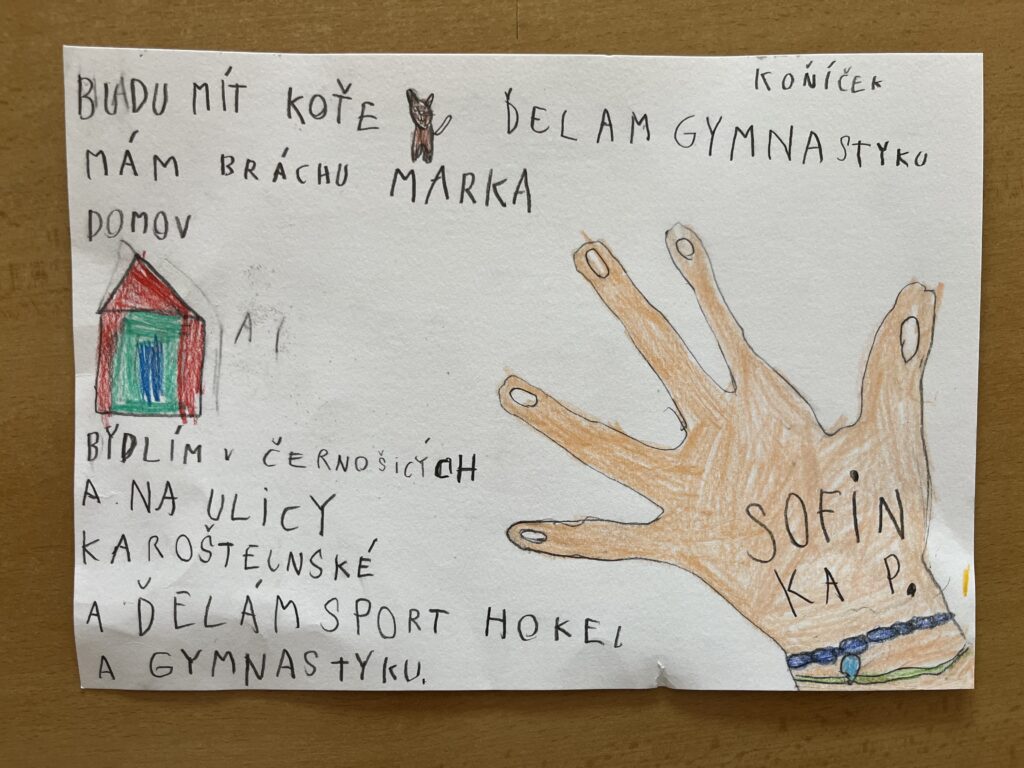 KOŇÍČEK
BUDU MÍT KOŤE ĎELAM GYMNASTYKU
MÁM BRÁCHU MARKA
DOMOV
A
BÝDLÍM V ČERNOŠICÝCH
A NA ULICY
KAROŠTELNSKÉ
A ĎELÁM SPORT HOKEJ
A GYMNASTYKU.
SOFIN
KA P.